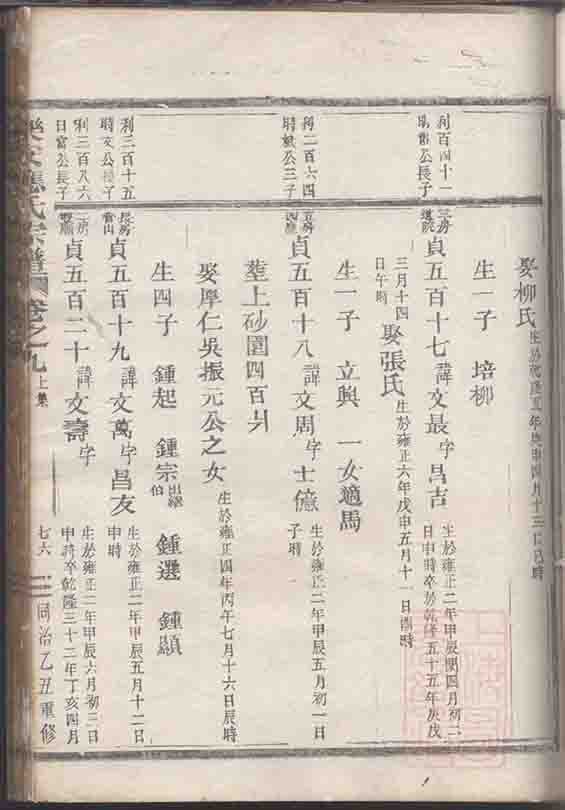 娶柳氏生於乾隆五年庚申四月十三日巳時
生一子 培柳
利百四十一
助富公長子
三房
道院
貞五百十七諱文最字昌吉生於雍正二年甲辰閏四月初二
日申時卒於乾隆五十五年庚戌
三月十四
日午時
娶張氏生於雍正六年戊申五月十一日酉時
生一子 立興 一女適馬
利二百六四
時斌公三子
貞五百十八諱文周字士億生於雍正二年甲辰五月初一日
子時
塟上砂園四百
娶厚仁吳振元公之女生於雍正四年丙午七月十六日辰時
生四子 鍾起 鍾宗出繼伯 鍾選 鍾顯
利三百十五
時文公長子
長房
貞五百十九諱文萬字昌友生於雍正二年甲辰五月十二日
申時
利三百八六
日富公長子
二房
貞五百二十諱文壽字生於雍正二年甲辰六月初二日
申時卒乾隆三十二年丁亥四月
樂安蔣氏宗譜 卷之九 上集 七六 同治乙丑重修